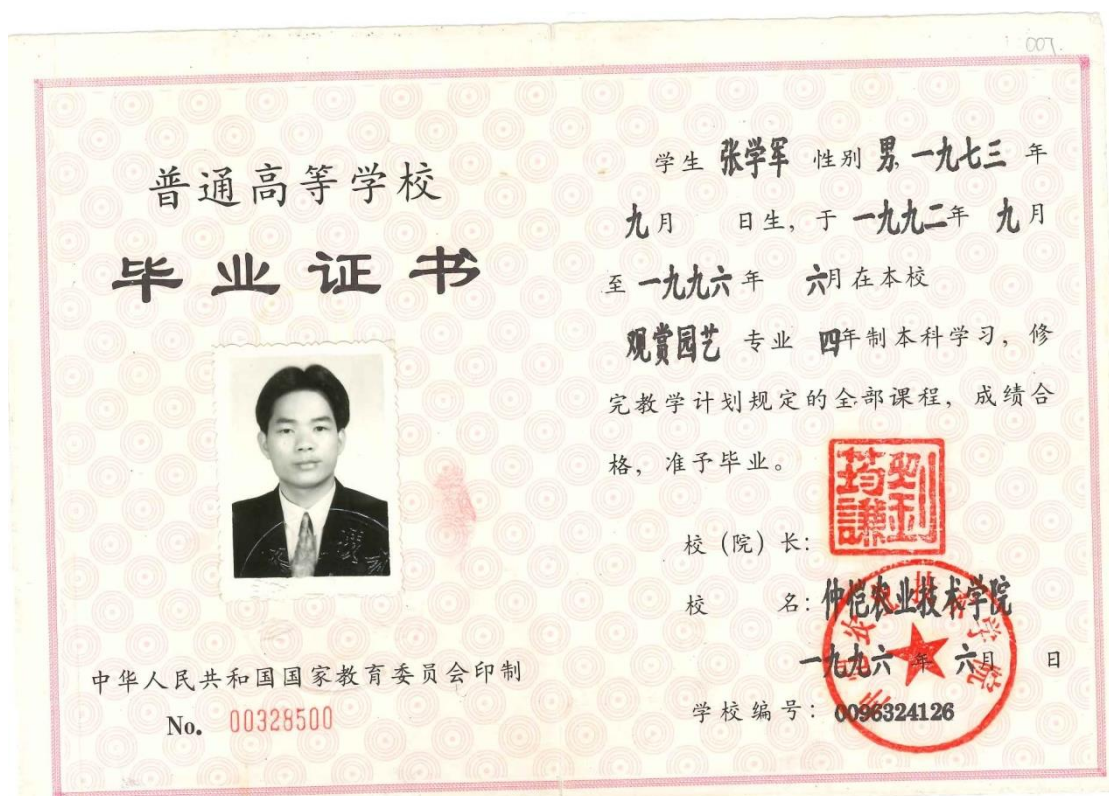 007.
普通高等学校
毕业证书
中华人民共和国国家教育委员会印制
No. 00328500
学生 张学军 性别 男,一九七三 年
九月 日生, 于 一九九二年 九月
至 一九九六 年 六月在本校
观赏园艺 专业 四年制本科学习, 修
完教学计划规定的全部课程, 成绩合
格, 准予毕业。
校 (院) 长:
校 名: 仲恺农业技术学院
一九九六 年 六月 日
学校编号: 0096324126